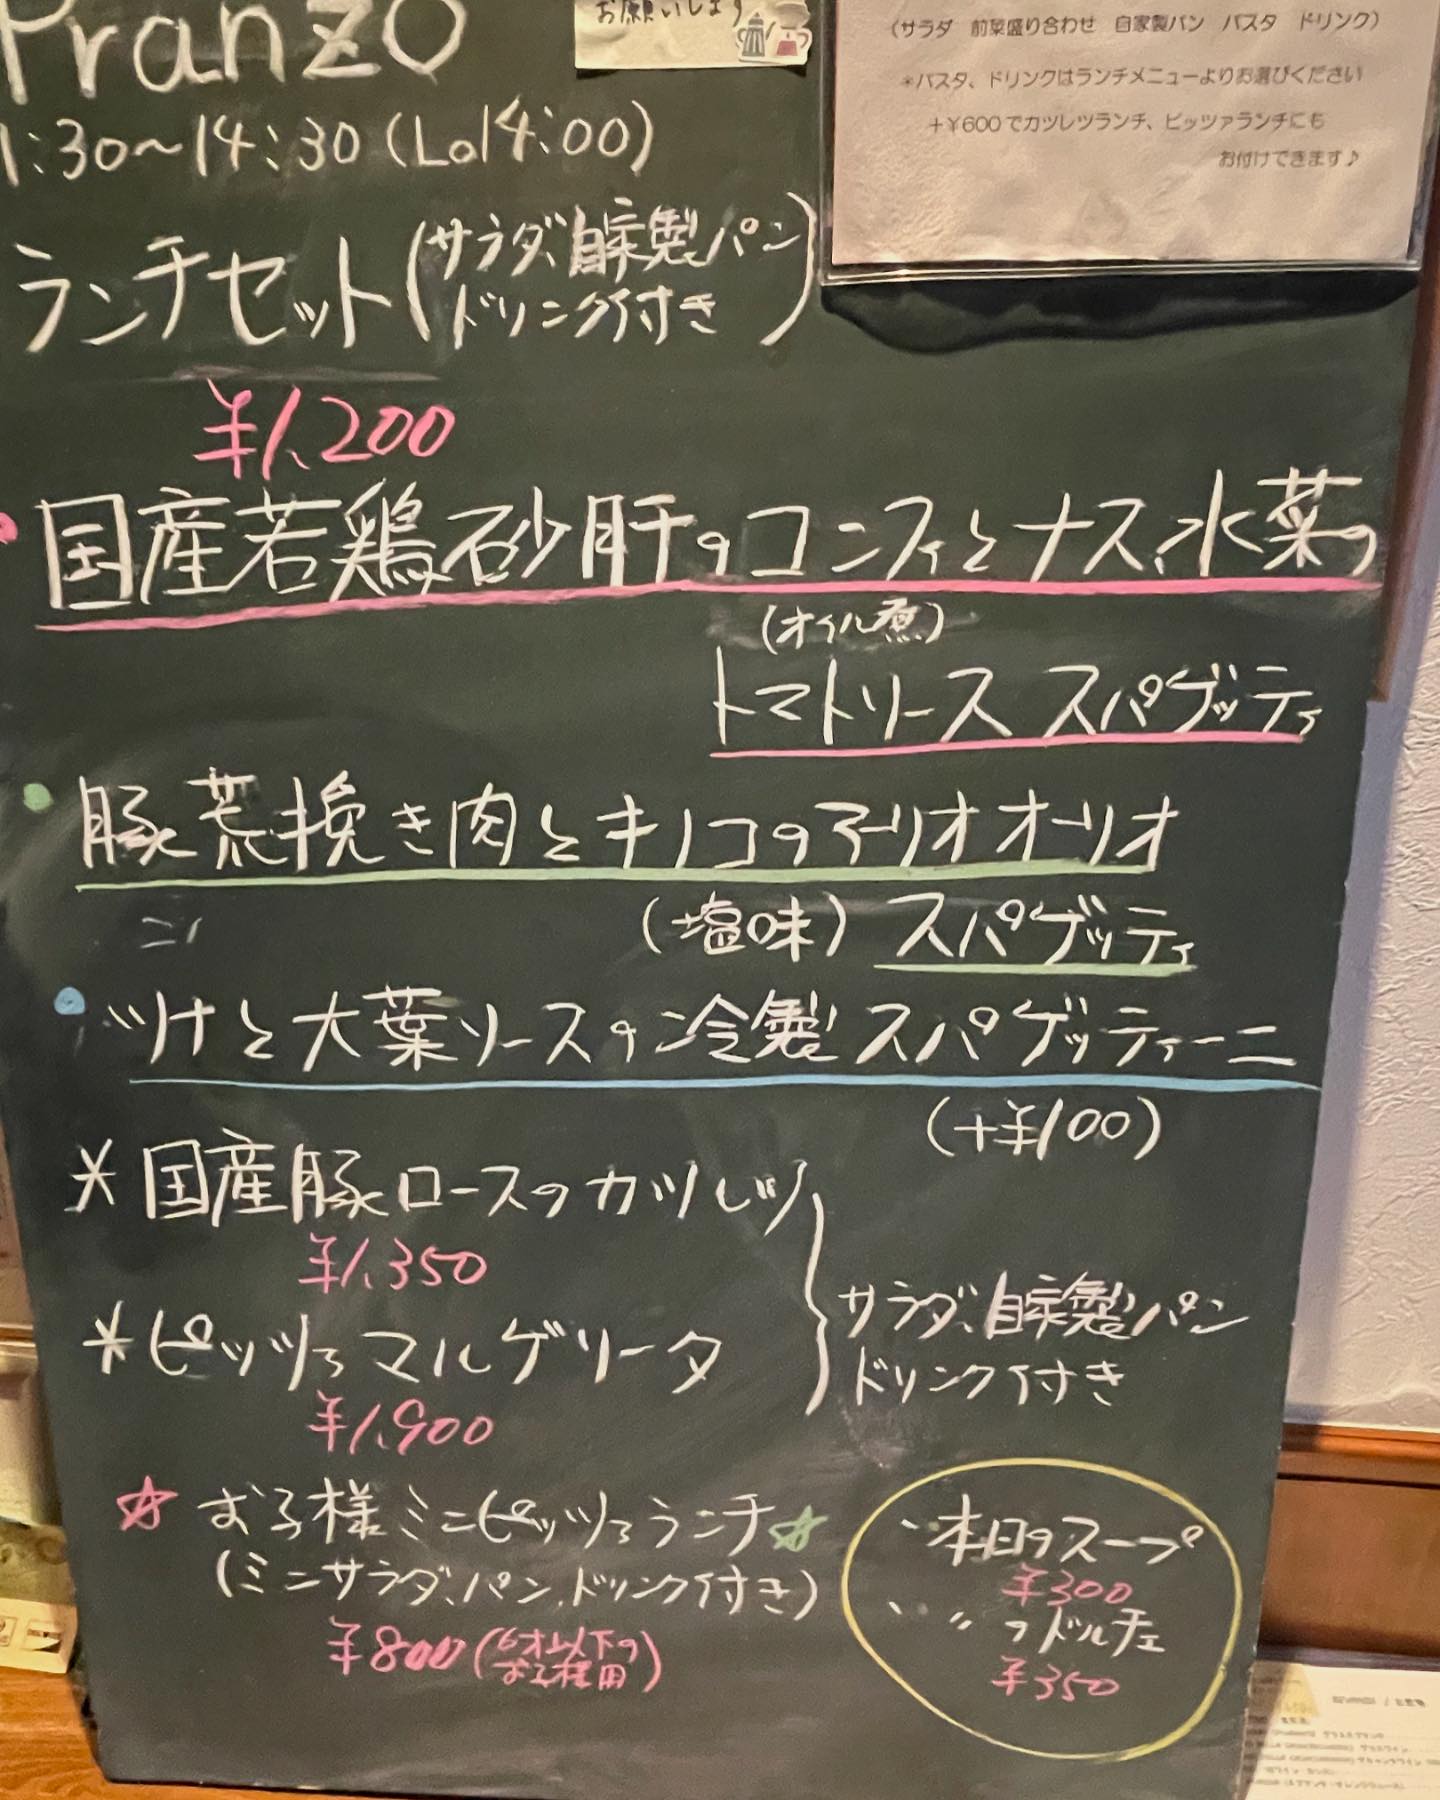 Pranzo
お願いします
1:30〜14:30(Lo14:00)
(サラダ 前菜盛り合わせ 自家製パン パスタ ドリンク)
*パスタ、ドリンクはランチメニューよりお選びください
+¥600でカツレツランチ、ピッツァランチにも
お付けできます♪
ランチセット(サラダ、自家製パン
ドリンク付き)
¥1,200
国産若鶏砂肝のコンフィとナス、水菜の
(オイル煮)
トマトソース スパゲッティ
豚荒挽き肉とキノコのアーリオオーリオ
(塩味)スパゲッティ
ツナと大葉ソースの冷製スパゲッティーニ
(+¥100)
*国産豚ロースのカツレツ
¥1,350
*ピッツァマルゲリータ
¥1,900
サラダ、自家製パン
ドリンク付き
☆お子様ミニピッツァランチ☆
(ミニサラダ、パン、ドリンク付き)
¥800(6才以下の
お子様用)
本日のスープ
¥300
〃のドルチェ
¥350